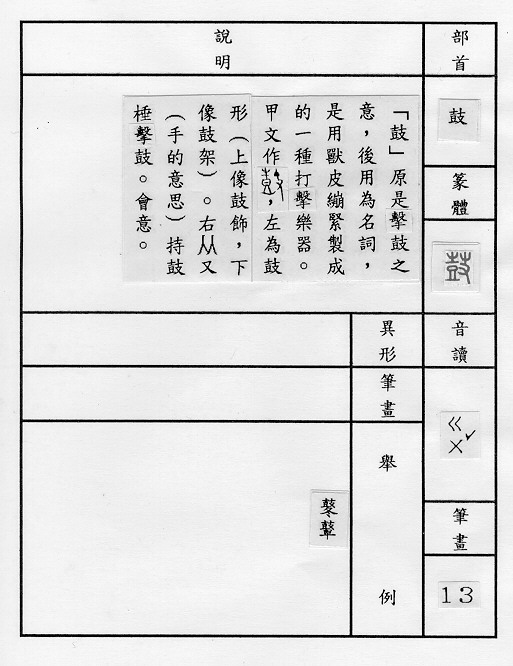 部首
鼓
篆體
鼓
音讀
ㄍㄨˇ
筆畫
13
說明
「鼓」原是擊鼓之
意，後用為名詞，
是用獸皮繃緊製成
的一種打擊樂器。
甲文作，左為鼓
形（上像鼓飾，下
像鼓架）。右从又
（手的意思）持鼓
棰擊鼓。會意。
異形
筆畫
舉例
鼕鼙